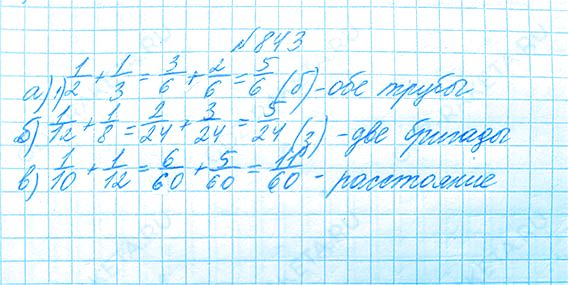 № 843
а) 1) 1/2 + 1/3 = 3/6 + 2/6 = 5/6 (б) - обе трубы
б) 1/12 + 1/8 = 2/24 + 3/24 = 5/24 (з) - две бригады
в) 1/10 + 1/12 = 6/60 + 5/60 = 11/60 - расстояние